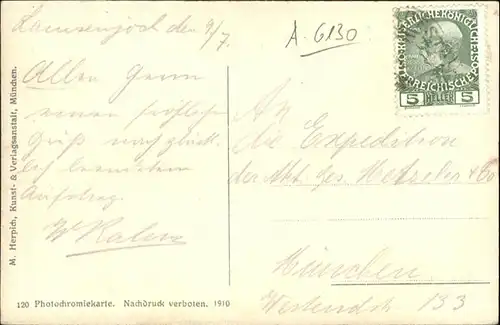 Lamsenjoch den 9/7.
A. 6130
Allen Herrn
einen fröhlichen
Gruß nach glückl
ich beendetem
Aufstieg.
An
die Expedition
der Akt. Ges. Metzeler & Co
München
Westendstr 133
KAISERLICHE KÖNIGLICHE
ÖSTERREICHISCHE POST
5 HELLER 5
M. Herpich, Kunst- & Verlagsanstalt, München.
120 Photochromiekarte. Nachdruck verboten. 1910